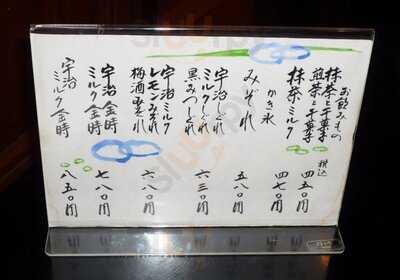 お飲みもの
抹茶と干菓子
煎茶と干菓子
抹茶ミルク
税込
四五〇円
四七〇円
かき氷
みぞれ
五八〇円
宇治しぐれ
ミルクしぐれ
黒みつしぐれ
六三〇円
宇治ミルク
レモンみぞれ
梅酒みぞれ
六八〇円
宇治金時
ミルク金時
七八〇円
宇治
ミルク金時
八五〇円